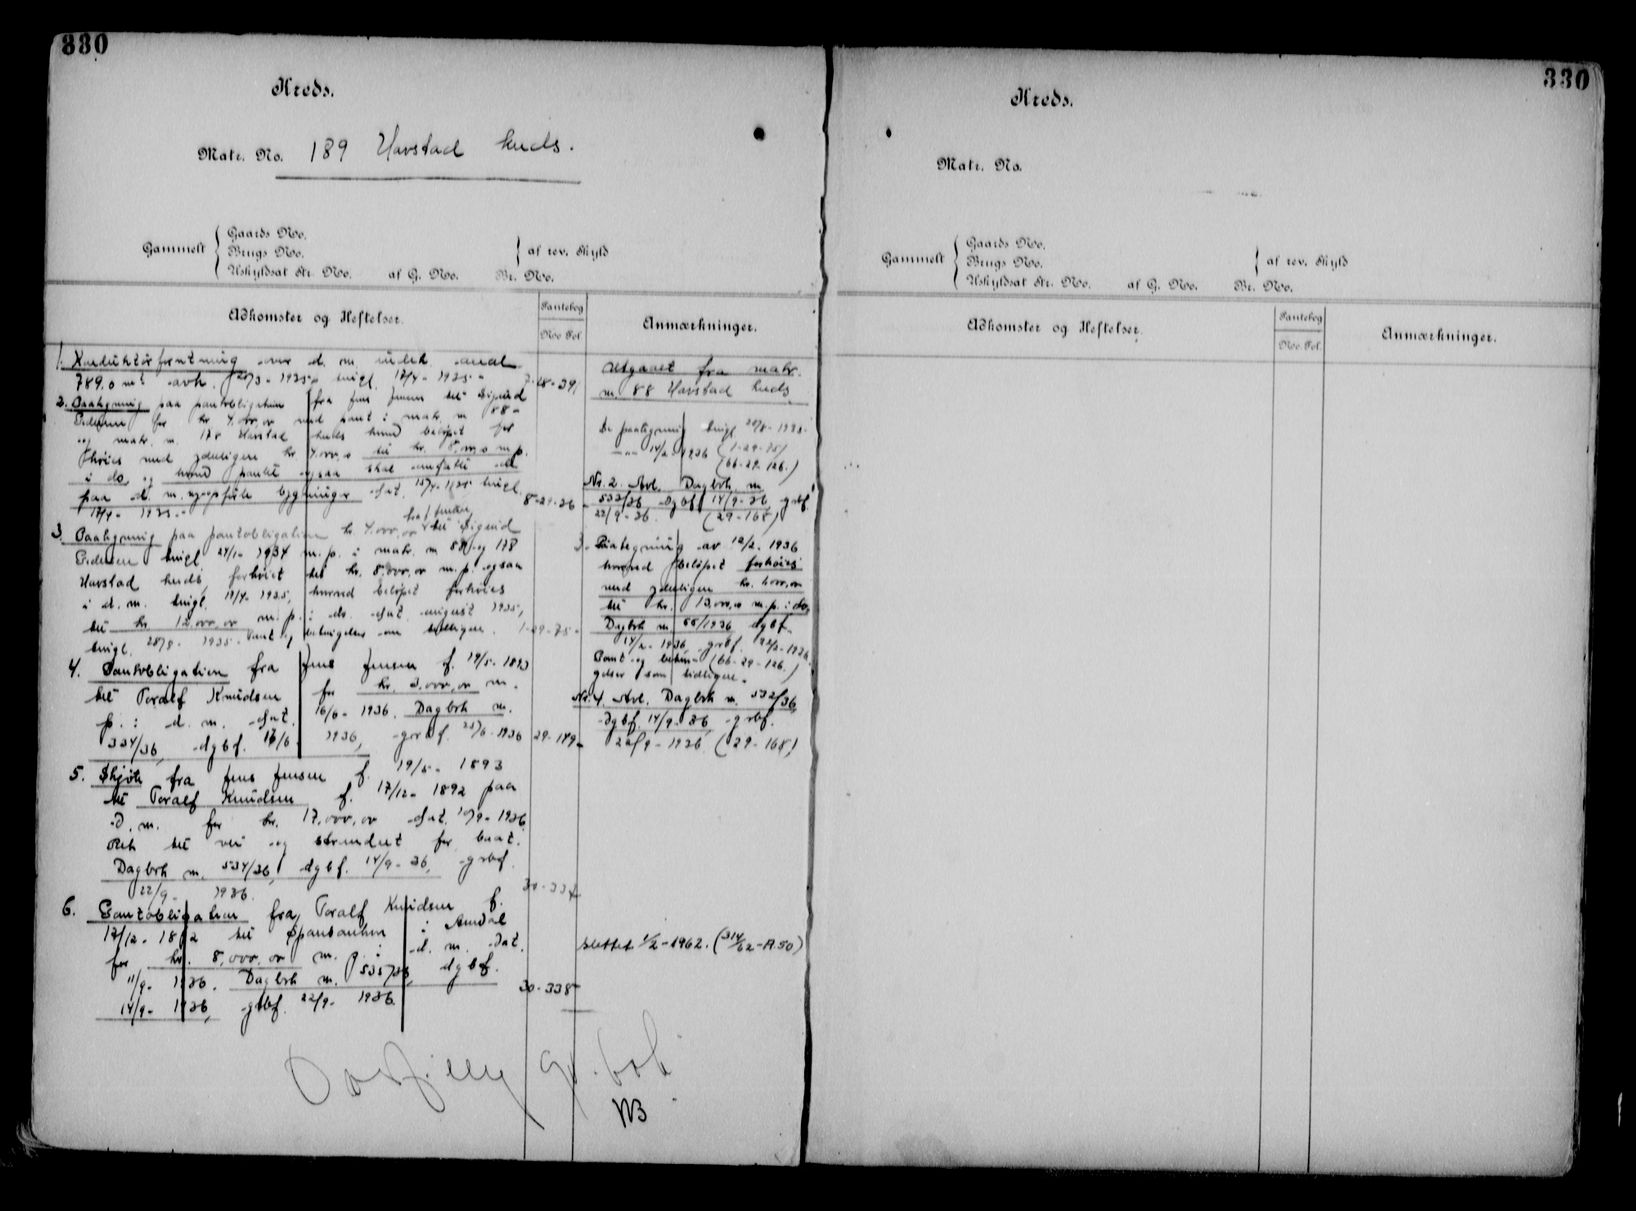 330
Kreds.
Matr. No. 189 Havstad kreds.
Gammelt
Gaards No.
Brugs No.
Uskyldsat Str. No. af G. No. Br. No.
af rev. Skyld
Adkomster og Heftelser.
Pantebog
No. Fol.
Anmærkninger.
1. Konduktørforretning over d. m. areal
789.0 m² avh. 1925 tingl. 17/4 - 1935 -
2. Paategning paa pantobligation fra Jens Jensen til Sigurd
Pedersen for kr. 4.000,00 med pant i matr. nr. 88 -
og matr. nr. 178 Havstad kreds hvorved beløpet
med yderligere kr. 4.000,00 til kr. 8,000,00 m.p.
i do. og hvorved pantet ogsaa skal omfatte
paa d. m. opførte bygninger dat. 15/4 - 1935 tingl.
17/4 - 1935 -
3. Paategning paa pantobligation fra J. Jensen kr. 4.000,00 til Sigurd
Pedersen tingl. 24/1 - 1934 m.p. i matr. nr. 88 og 178
Havstad kreds, forhøiet til kr. 8,000,00 m.p. ogsaa
i d. m. tingl. 17/4 - 1935, hvorved beløpet forhøies
til kr. 12.000,00 m.p. i do. dat. august 1935,
tingl. 28/8 - 1935. Pant og betingelser som tidligere. 1-29-75 -
4. Pantobligation fra Jens Jensen f. 19/5 - 1893
til Toralf Knudsen for kr. 3,000,00 m.
p. i d. m. dat. 16/6 - 1936. Dagbok nr.
334/36, dgbf. 17/6 1936, grbf. 25/6 - 1936 29-149 -
5. Skjøte fra Jens Jensen f. 19/5 - 1893
til Toralf Knudsen f. 17/12 - 1892 paa
d. m. for kr. 17,000,00 dat. 10/9 - 1936.
Ret til vei og strandret for baat.
Dagbok nr. 534/36, dgbf. 14/9 - 36, grbf.
22/9 - 1936. 30-337
6. Pantobligation fra Toralf Knudsen f.
17/12 - 1892 til Sparebanken i Arendal
for kr. 8,000,00 m. p. i d. m. dat.
11/9 - 1936. Dagbok nr. 535/36, dgbf.
14/9 - 1936, grbf. 22/9 - 1936. 30-338
Utgaaet fra matr.
nr 88 Havstad kreds.
Se paategning tingl 28/8 - 1935 -
(1-29-75)
14/2 - 1936
(66-29-126.)
Nr. 2. Avl. Dagbok nr.
533/36 dgbf 14/9 - 36 grbf.
22/9 - 36. (29-168)
3. Paategning av 12/2 - 1936
hvorved beløpet forhøies
med yderligere kr. 1.000,00
til kr. 13,000,00 m.p. i do,
Dagbok nr 66/1936 dgbf.
14/2 - 1936 grbf. 22/2 - 1936.
Pant og betin- (66-29-126.)
gelser som tidligere.
Nr. 4. Avl. Dagbok nr. 532/36,
dgbf. 14/9 - 36, grbf.
22/9 - 1936 (29-168)
slettet 1/2 - 1962. (314/62 - A.50)
NB
330
Kreds.
Matr. No.
Gammelt
Gaards No.
Brugs No.
Uskyldsat Str. No. af G. No. Br. No.
af rev. Skyld
Adkomster og Heftelser.
Pantebog
No. Fol.
Anmærkninger.